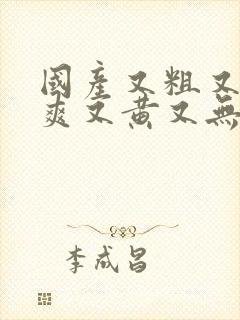 國產又粗又
爽又黃又無
李成昌